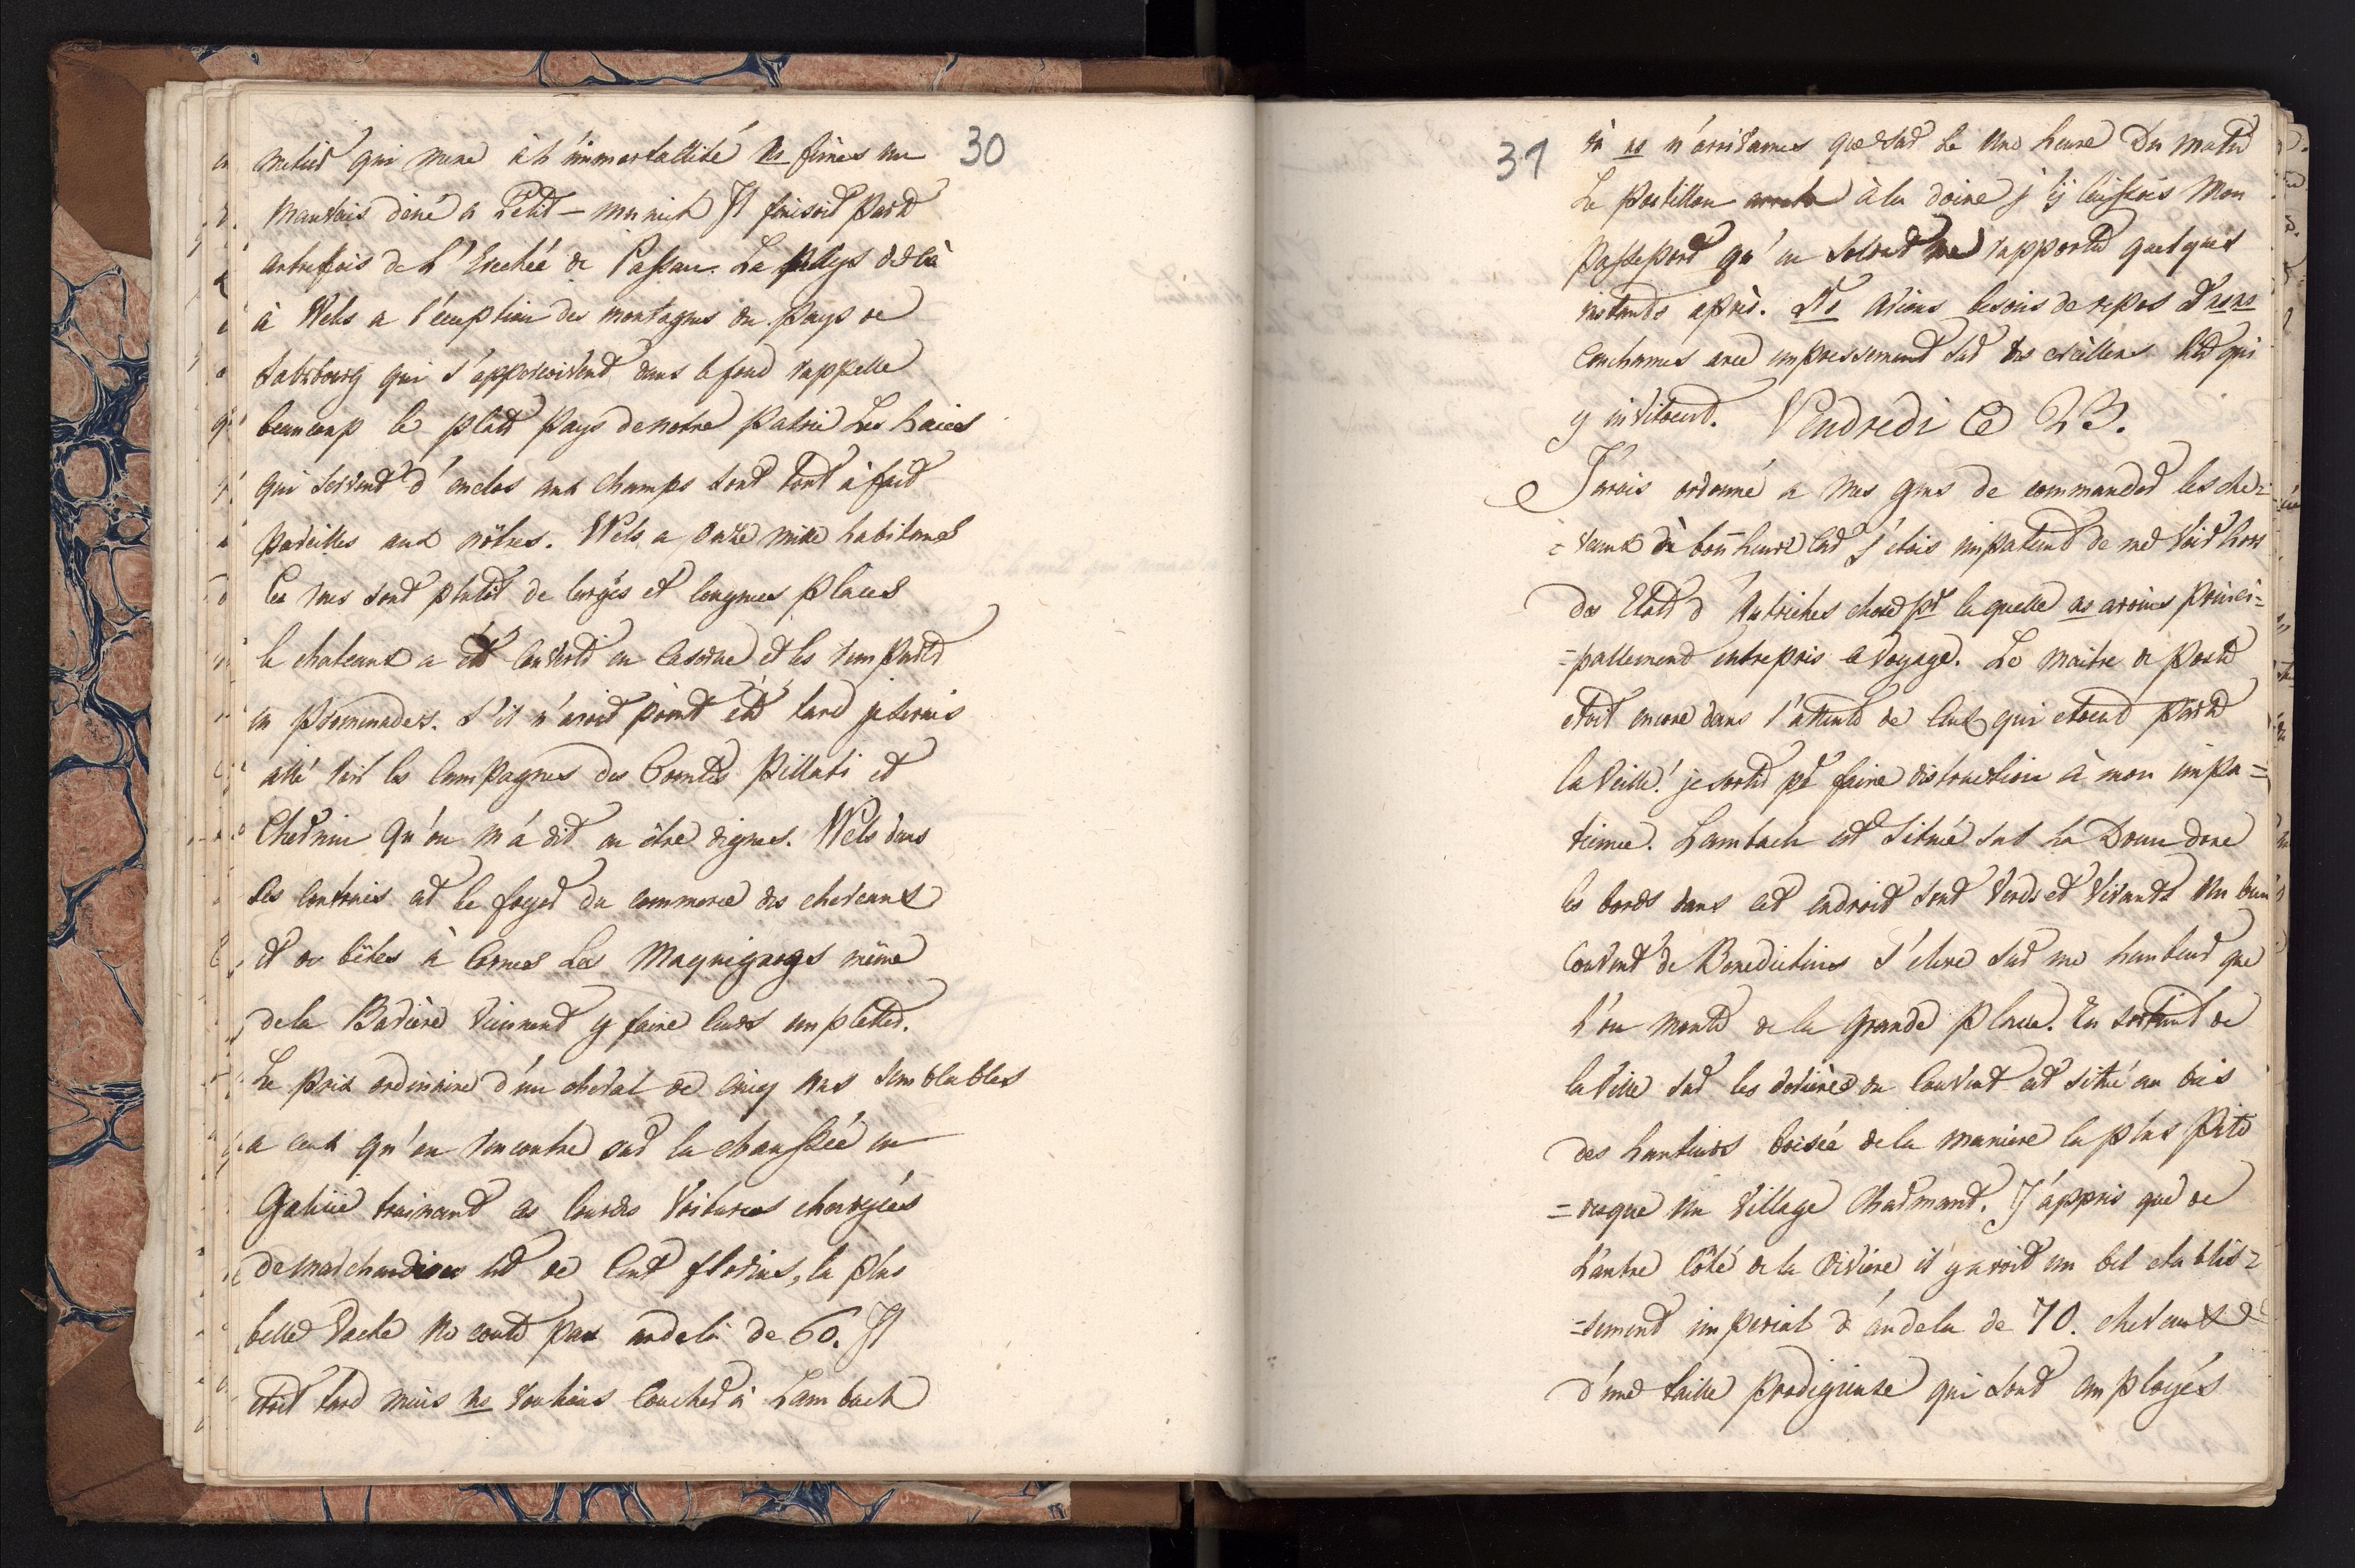 30
metier qui mene à l'immortallité ns fimes un
mauvais diné a Petit-munich Il faisoit partie
autrefois de l'Evechée de Passau. La pays delà
à Wels a l'éxception des montagnes du pays de
Salsbourg qui s'apperçoivent dans le fond rappelle
beaucoup le platt pays de notre patrie Les haies
qui servent d'enclos aux champs sont tout à fait
pareilles aux nôtres. Wels a onze mille habitans
les rues sont plutôt de larges et longues places
le chateaux a été converti en caserne et les remparts
en promenades. S'il n'avoit point été tard je serois
allé voir les campagnes des Comtes Pillati et
Chernin qu'on m'a dit en être dignes. Wels dans
ces contrées est le foyer du commerce des chevaux
et de bêtes à cornes Les Maquignogs même
de la Bavière viennent y faire leurs emplettes.
Le prix ordinaire d'un cheval de cinq ans semblables
a ceux qu'on rencontre sur la chaussée en
Galicie trainant ces lourdes voitures chargées
de marchandises est de cent florins, la plus
belle vache ne coute pas audelà de 60. Il
etoit tard mais ns voulions coucher à Lambach
31
où ns n'arrivames que sur le une heure Du matin
Le postillon à la doine j'ÿ laissois Mon
passeport qu'un soldat me rapporta quelques
instants après. Ns avions besoins de repos et ns ns
couchames avec empressement sur des exellens lits qui
y invitoient. Vendredi le 23.
J'avois ordonné a mes gens de commander les che=
=vaux de bonheure car j'étois impatient de me voir hors
des Etats d'Autriches chose pr laquelle ns avoins princi=
=pallement entrepris ce voyage. Le maitre de poste
etoit encore dans l'attente de ceux qui etoient partis
la veille! je sortis pr faire distraction à mon impa=
tience. Lambach est située sur la Draun done
les bords dans cet endroit sont verds et vivants Un beau
Couvent de Benedictins s'eleve sur une hauteur que
l'on monte de la grande place. En sortant de
la ville sur les derières du Couvent est situé au bas
des hauteurs boisée de la maniere la plus pito
=resque un village charmant. J'appris que de
l'autre côté de la riviere il y avoit un bel etablis=
=sement imperial d'audela de 70. chevaux
d'une taille prodigieuse qui sont employés